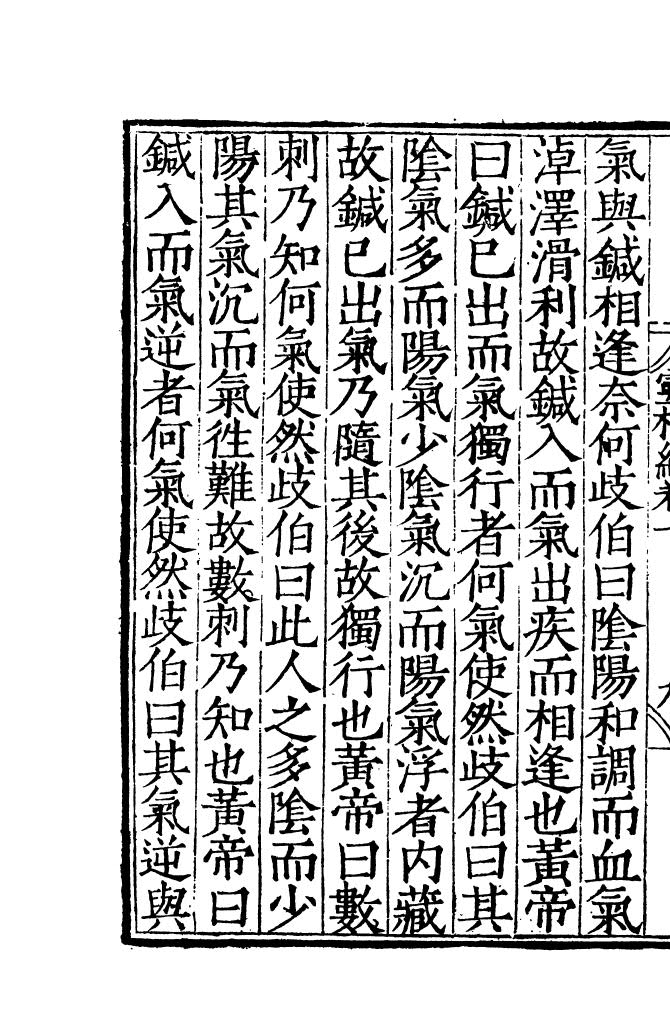 氣與鍼相逢奈何歧伯曰陰陽和調而血氣
淖澤滑利故鍼入而氣出疾而相逢也黃帝
曰鍼已出而氣獨行者何氣使然歧伯曰其
陰氣多而陽氣少陰氣沉而陽氣浮者內藏
故鍼已出氣乃隨其後故獨行也黃帝曰數
刺乃知何氣使然歧伯曰此人之多陰而少
陽其氣沉而氣徃難故數刺乃知也黃帝曰
鍼入而氣逆者何氣使然歧伯曰其氣逆與